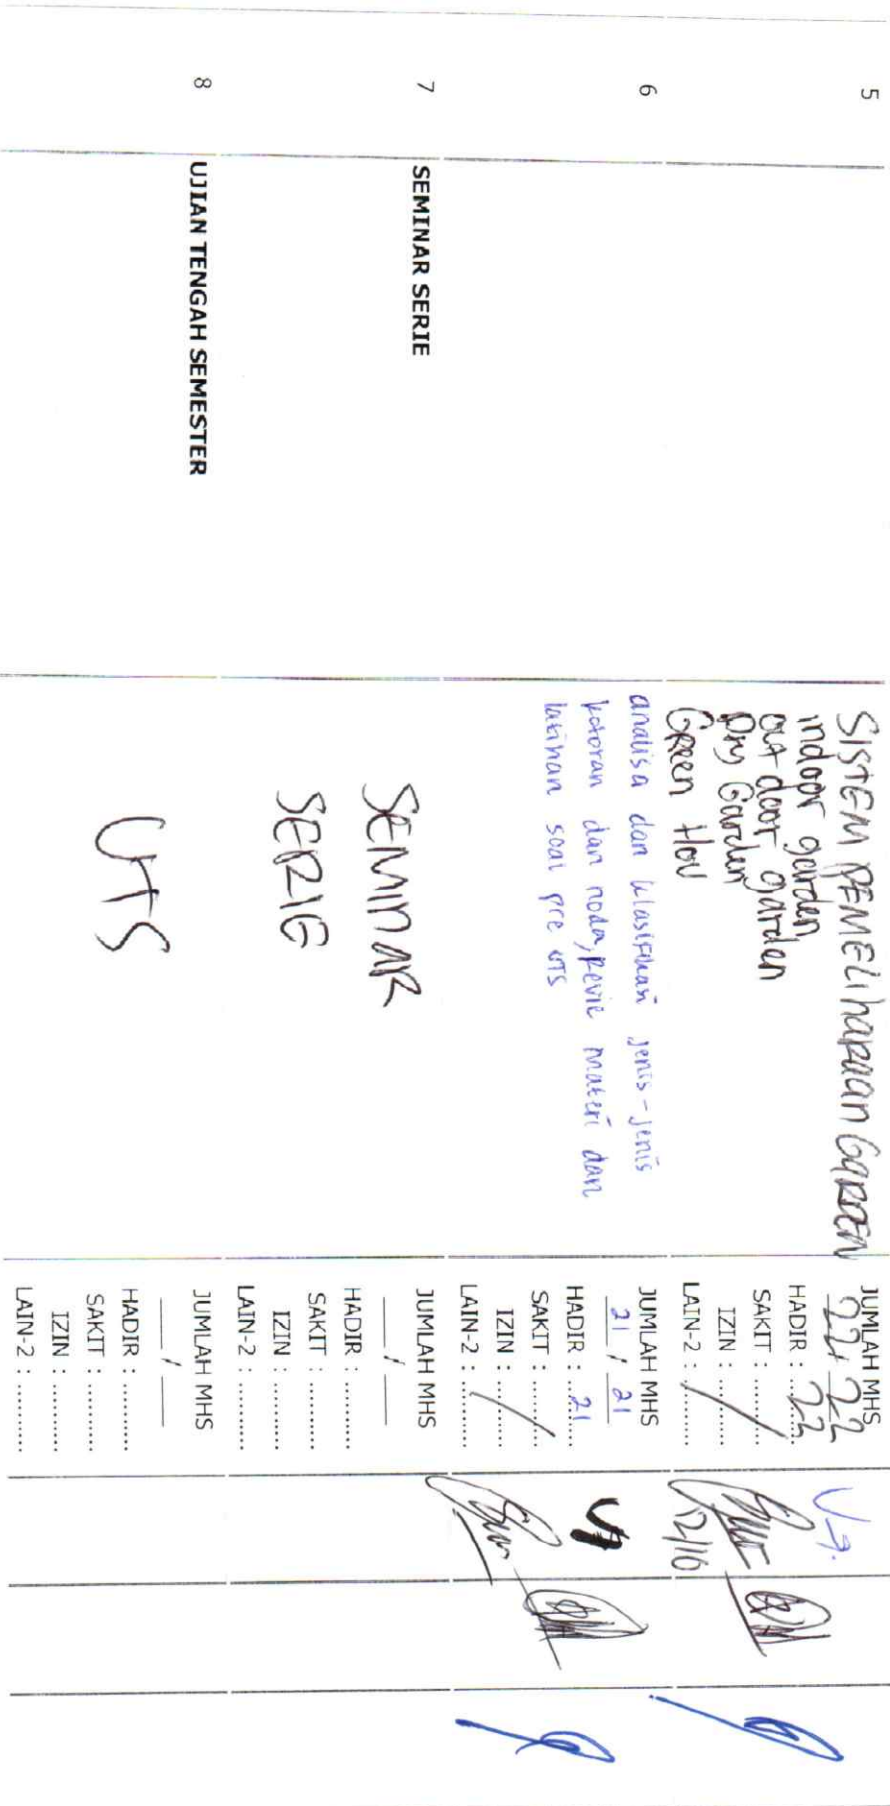 5
SISTEM PEMELIharaan GARDEN
indoor garden,
out door garden
Dry Garden
Green Hou
JUMLAH MHS
22 / 22
HADIR : 22
SAKIT : ..........
IZIN : ..........
LAIN-2 : ..........
12/10
6
analisa dan klasifikasi jenis-jenis
kotoran dan noda, revie materi dan
latihan soal pre UTS
JUMLAH MHS
21 / 21
HADIR : 21
SAKIT : ..........
IZIN : ..........
LAIN-2 : ..........
7
SEMINAR SERIE
SEMINAR
SERIE
JUMLAH MHS
___ / ___
HADIR : ..........
SAKIT : ..........
IZIN : ..........
LAIN-2 : ..........
8
UJIAN TENGAH SEMESTER
UTS
JUMLAH MHS
___ / ___
HADIR : ..........
SAKIT : ..........
IZIN : ..........
LAIN-2 : ..........